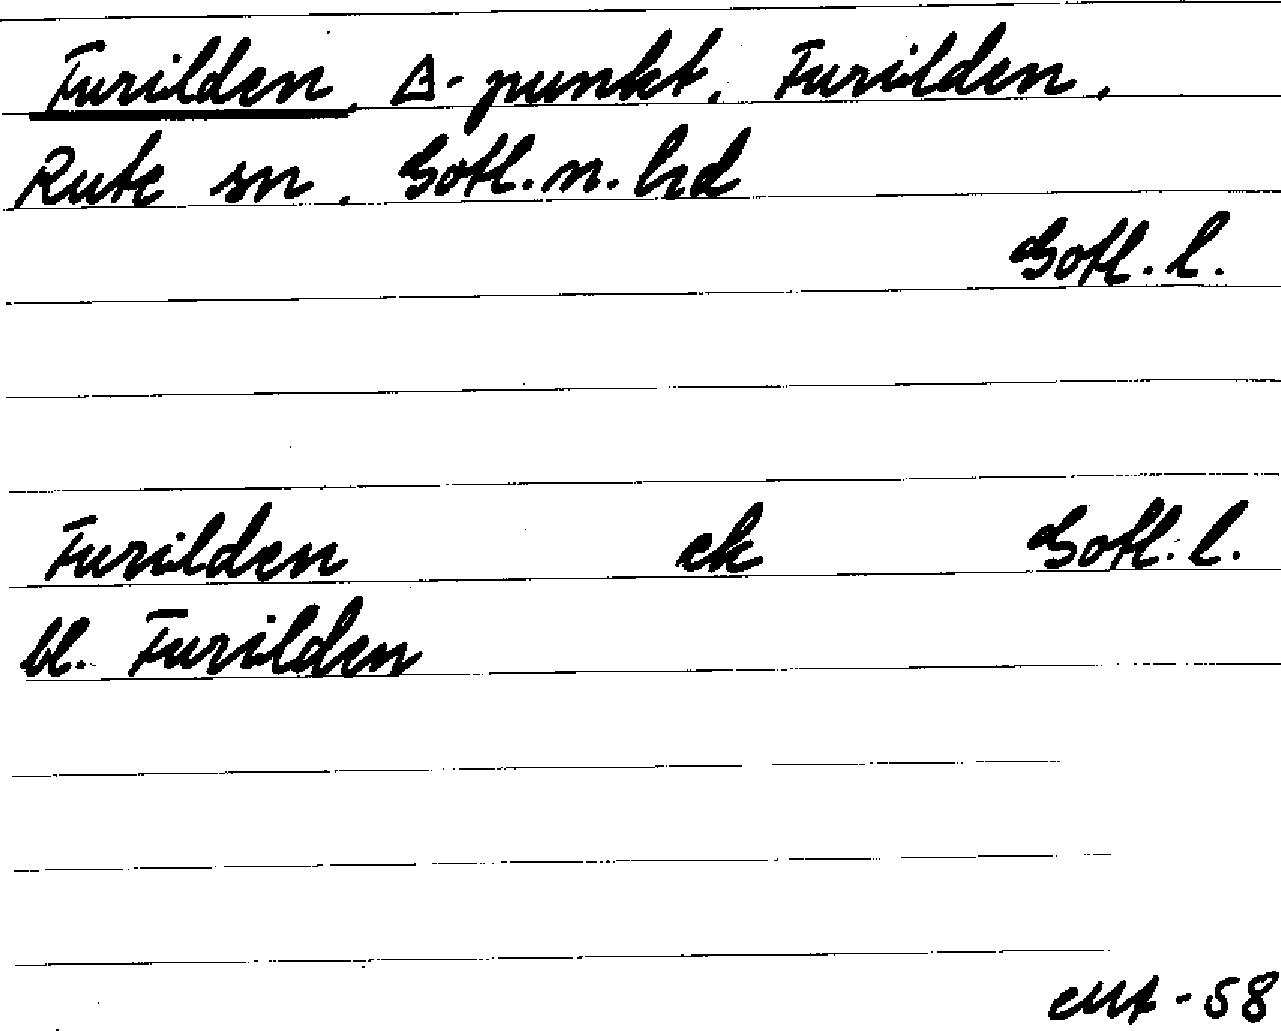 Furilden, △-punkt, Furilden,
Rute sn, Gotl. n. hd
Gotl. l.
Furilden ek Gotl. l.
bl. Furilden
-58